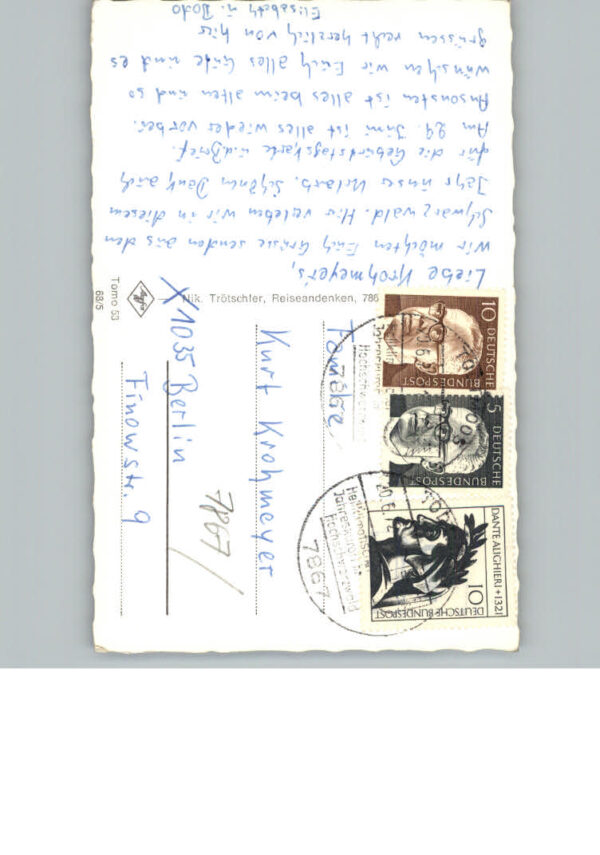 Liebe Krohmeyer's,
Wir möchten Euch Grüsse senden aus den
Schwarzwald. Hir verleben wir in diesem
Jahr unser Urlaub. Schönen Dank auch
für die Geburtstagskarte u.d.Brief.
Am 29. Juni ist alles wieder vorbei.
Ansonsten ist alles beim alten und so
wünschen wir Euch alles Gute und es
grüssen recht herzlich von hier
Elisabeth u. Bodo
Nik. Trötschler, Reiseandenken, 786
Tomo 53
68/5
Agfa
Familie
Kurt Krohmeyer
X 1035 Berlin
Finowstr. 9
7867/
10 DEUTSCHE BUNDESPOST
5 DEUTSCHE BUNDESPOST
DANTE ALIGHIERI +1321
10
DEUTSCHE BUNDESPOST
7867
20.6.72
Hochschwarzwald
7867